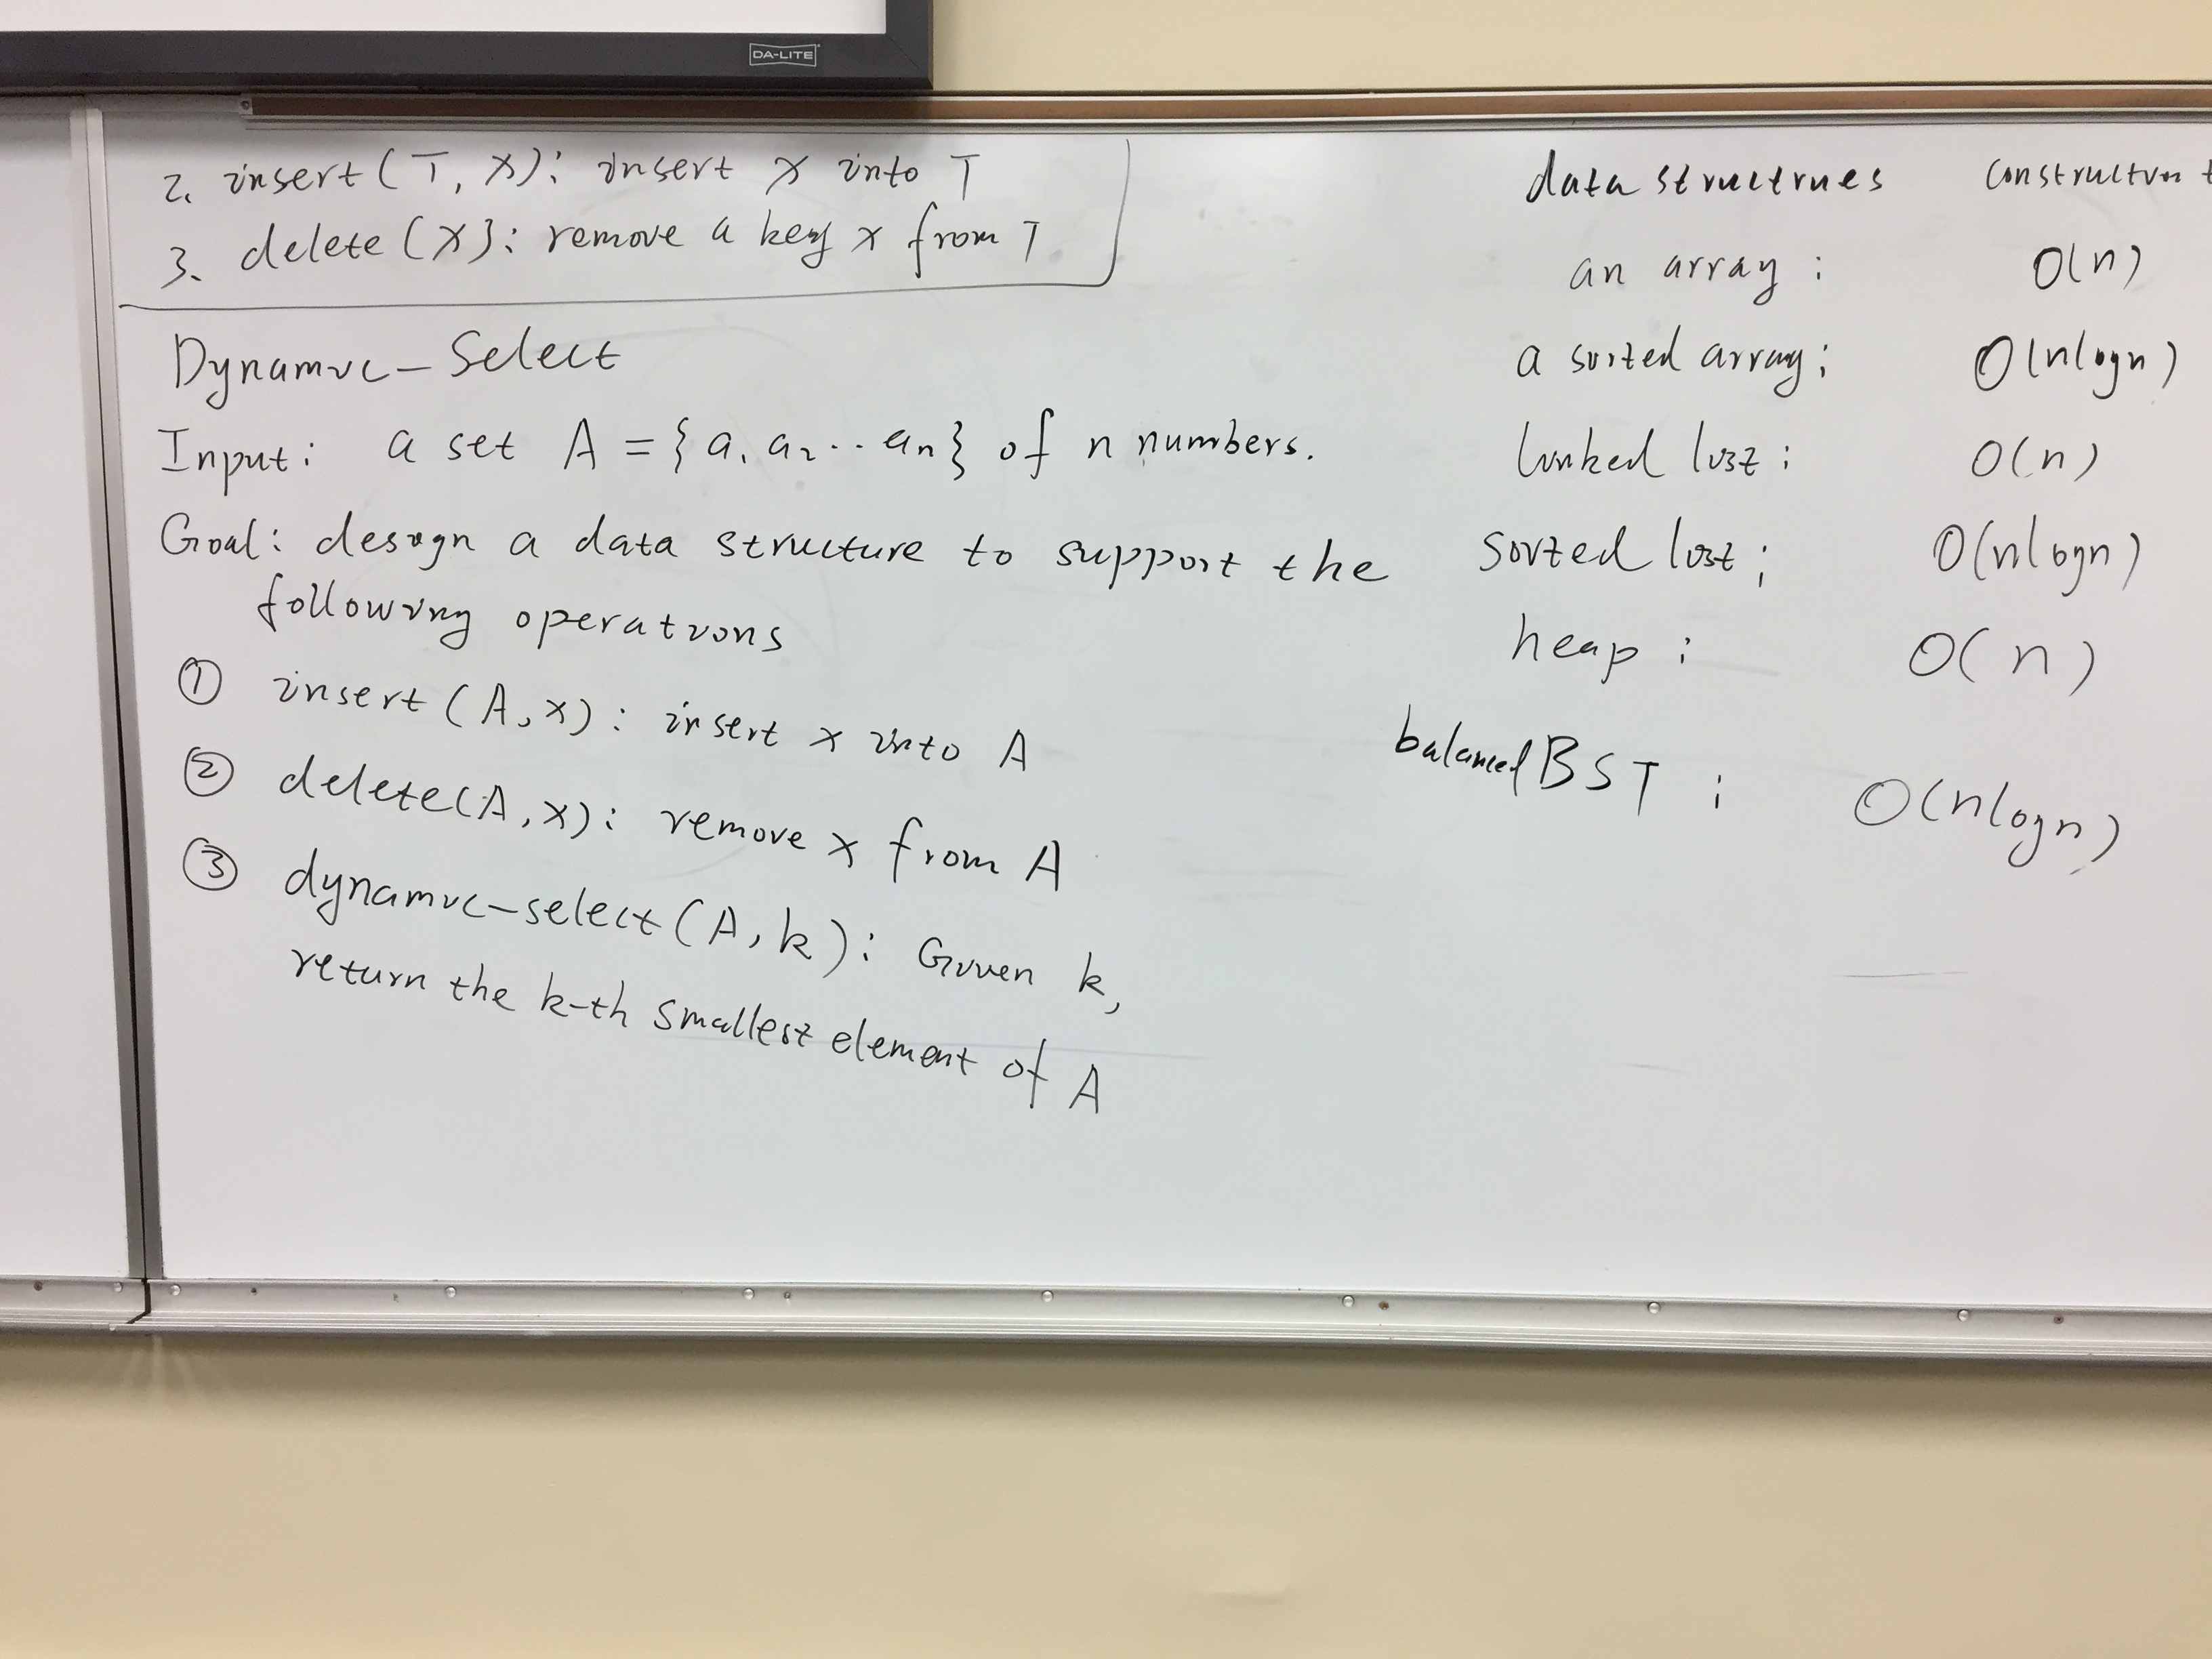 DA-LITE
2. insert(T, x): insert x into T
3. delete(x): remove a key x from T
Dynamic-Select
Input: a set A = {a₁ a₂ .. aₙ} of n numbers.
Goal: design a data structure to support the
following operations
① insert(A, x): insert x into A
② delete(A, x): remove x from A
③ dynamic-select(A, k): Given k,
return the k-th smallest element of A
data structrues construction t
an array: O(n)
a sorted array: O(nlogn)
linked list: O(n)
sorted list: O(nlogn)
heap: O(n)
balanced BST: O(nlogn)